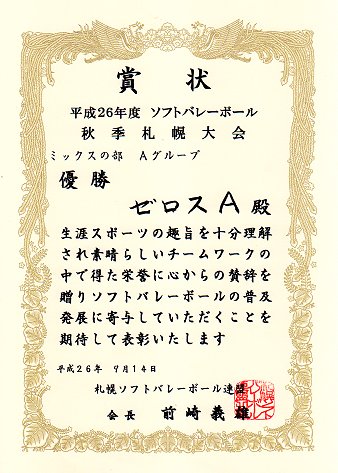 賞状
平成26年度 ソフトバレーボール
秋季札幌大会
ミックスの部 Aグループ
優勝
ゼロスA殿
生涯スポーツの趣旨を十分理解
され素晴らしいチームワークの
中で得た栄誉に心からの賛辞を
贈りソフトバレーボールの普及
発展に寄与していただくことを
期待して表彰いたします
平成26年 9月14日
札幌ソフトバレーボール連盟
会長 前崎義雄